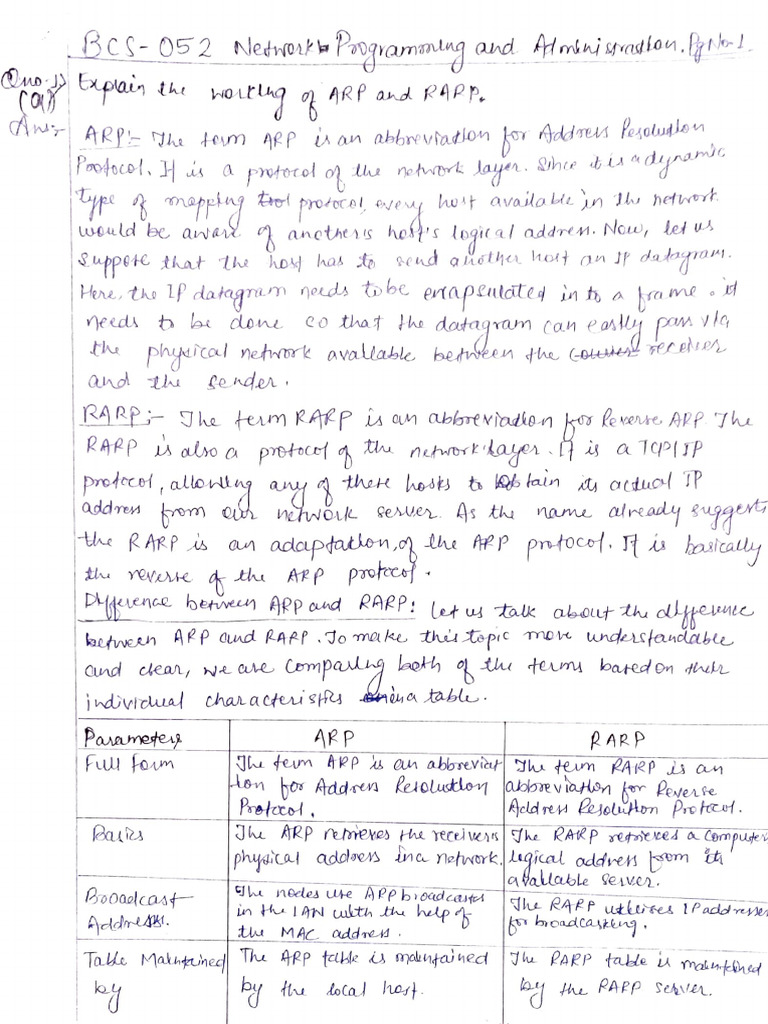 BCS-052 Network Programming and Administration. Pg No-1
Qno.1) Explain the working of ARP and RARP.
(a)
Ans:-
ARP:- The term ARP is an abbreviation for Address Resolution
Protocol. It is a protocol of the network layer. Since it is a dynamic
type of mapping protocol, every host available in the network
would be aware of another's host's logical address. Now, let us
suppose that the host has to send another host an IP datagram.
Here, the IP datagram needs to be encapsulated in to a frame. it
needs to be done so that the datagram can easily pass via
the physical network available between the receiver
and the sender.
RARP:- The term RARP is an abbreviation for Reverse ARP. The
RARP is also a protocol of the network layer. It is a TCP/IP
protocol, allowing any of these hosts to obtain its actual IP
address from our network server. As the name already suggests
the RARP is an adaptation, of the ARP protocol. It is basically
the reverse of the ARP protocol.
Difference between ARP and RARP: Let us talk about the difference
between ARP and RARP. To make this topic more understandable
and clear, we are comparing both of the terms based on their
individual characteristics in a table.
Parameters ARP RARP
Full form The term ARP is an abbreviat The term RARP is an
tion for Address Resolution abbreviation for Reverse
Protocol. Address Resolution Protocol.
Basics The ARP retrieves the receiver's The RARP retrieves a computer's
physical address in a network. logical address from its
available server.
Broadcast The nodes use ARP broadcasts The RARP utilises IP addresses
Address. in the LAN with the help of for broadcasting.
the MAC address.
Table Maintained The ARP table is maintained The RARP table is maintained
by by the local host. by the RARP server.